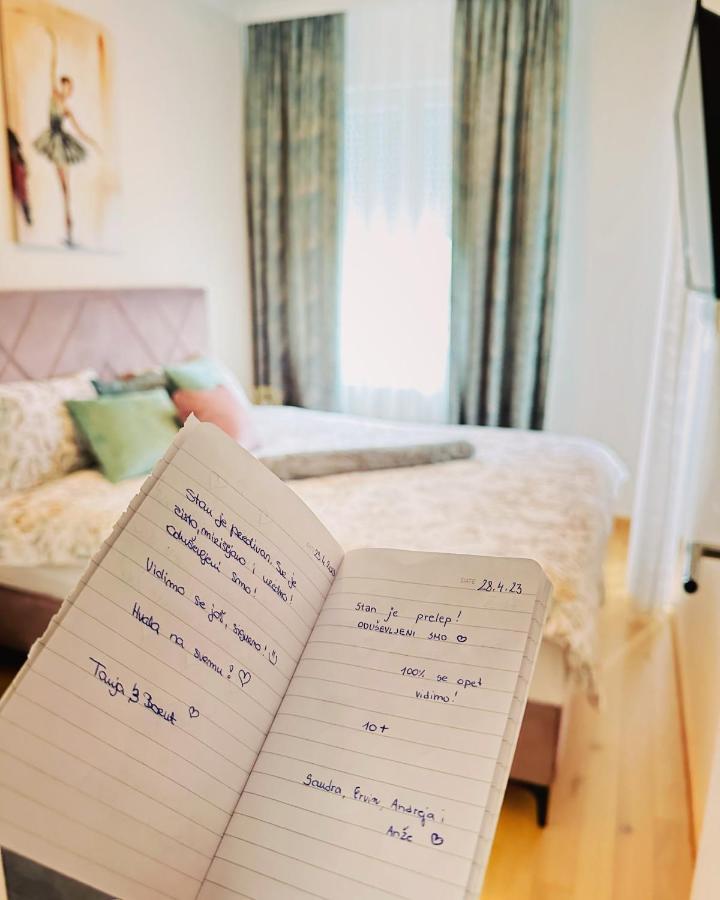 25.4.2023
Stan je predivan. Sve je
čisto, mirišljavo i uredno!
Oduševljeni smo!
Vidimo se još, sigurno! :)
Hvala na svemu! ♡
Tanja & Borut ♡
DATE 28.4.23
Stan je prelep!
ODUŠEVLJENI SMO ♡
100% se opet
vidimo!
10+
Sandra, Ervin, Andreja i
Anže ♡